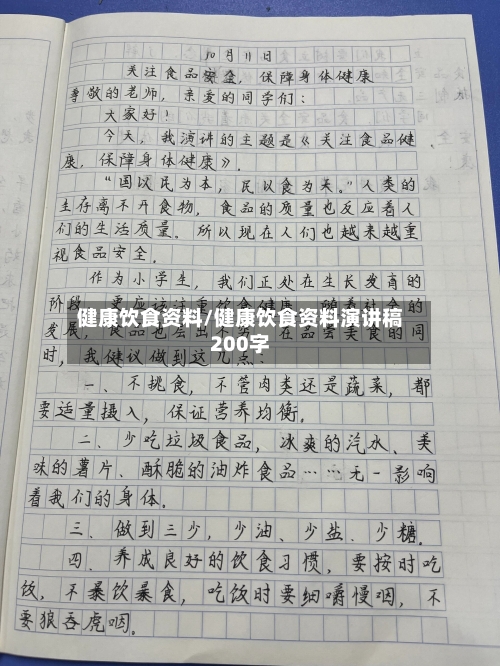 10月11日
关注食品安全,保障身体健康
尊敬的老师,亲爱的同学们:
大家好!
今天,我演讲的主题是《关注食品健
康,保障身体健康》。
“国以民为本,民以食为天。”人类的
生存离不开食物,食品的质量也反应着人
们的生活质量。所以现在人们也越来越重
视食品安全。
作为小学生,我们正处在生长发育的
阶段
健康饮食资料/健康饮食资料演讲稿
200字
发展,
同
时,我建议做到这几点:
一、不挑食,不管肉类还是蔬菜,都
要适量摄入,保证营养均衡。
二、少吃垃圾食品,冰爽的汽水、美
味的薯片、酥脆的油炸食品……无一影响
着我们的身体。
三、做到三少,少油、少盐、少糖。
四、养成良好的饮食习惯,要按时吃
饭,不暴饮暴食,吃饭时要细嚼慢咽,不
要狼吞虎咽。